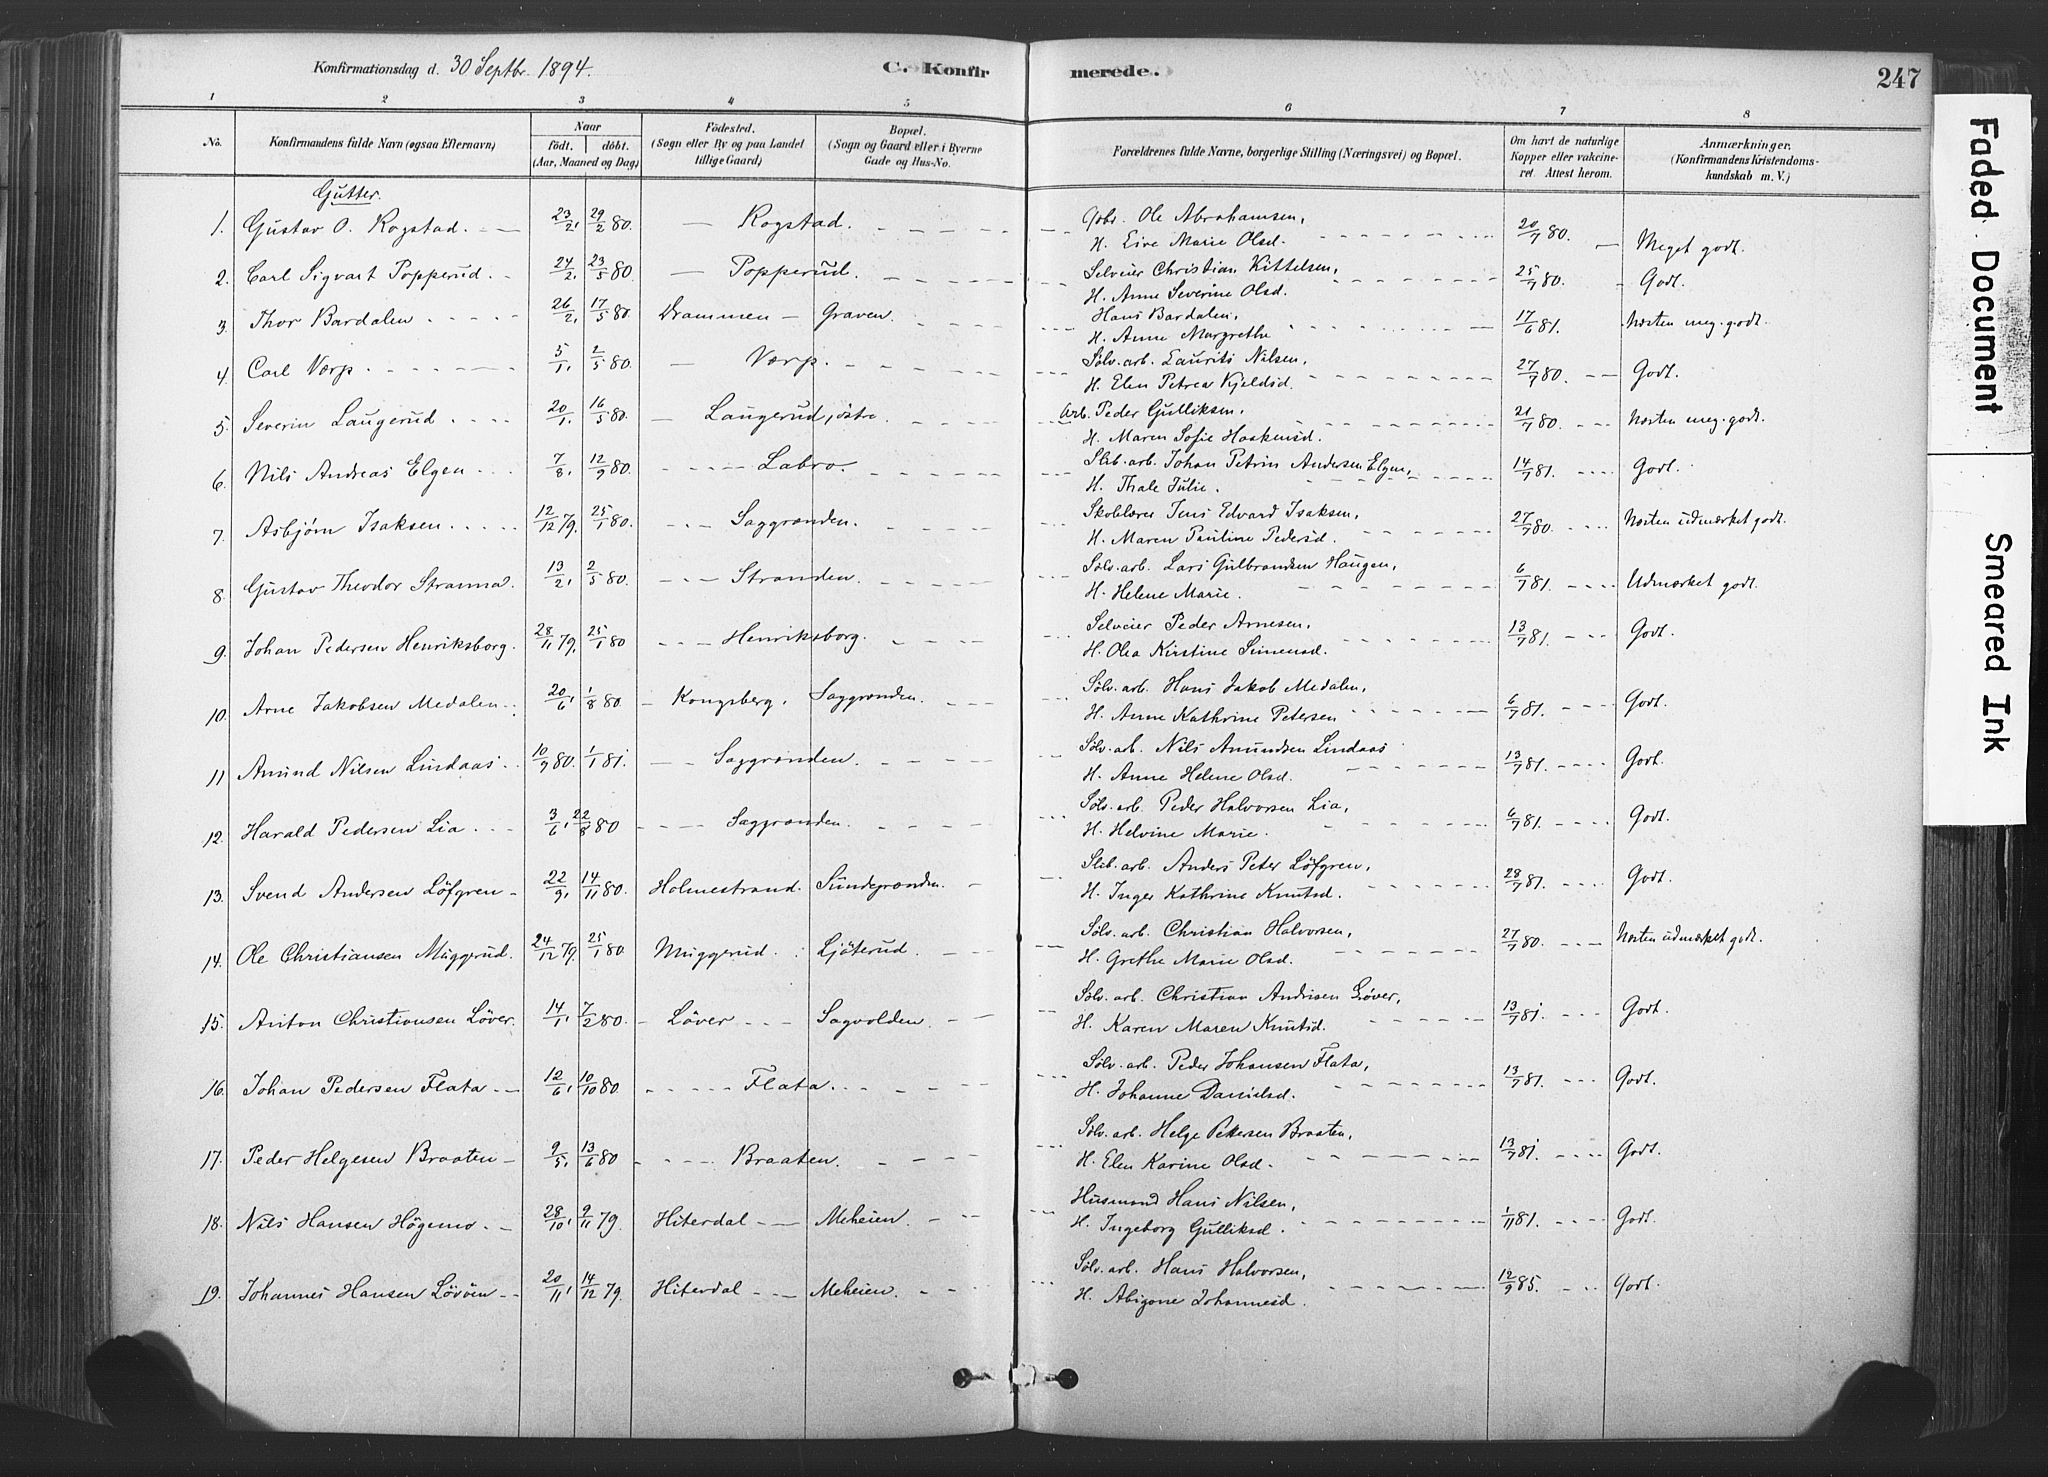 Konfirmationsdag d. 30 Septbr. 1894.
C. Konfirmerede.
247
1 2 3 4 5 6 7 8
No. Konfirmandens fulde Navn (ogsaa Efternavn) Naar født. døbt. (Aar, Maaned og Dag) Födested. (Sogn eller By og paa Landet tillige Gaard) Bopæl. (Sogn og Gaard eller i Byerne Gade og Hus-No. Forældrenes fulde Navne, borgerlige Stilling (Næringsvei) og Bopæl. Om havt de naturlige Kopper eller vakcineret. Attest herom. Anmærkninger. (Konfirmandens Kristendomskundskab m. V.)
Gutter.
1. Gustav O. Rogstad. 23/2, 29/2 80. Rogstad. Gbr. Ole Abrahamsen, 20/7 80. Meget godt.
H. Live Marie Olsd.
2. Carl Sigvart Popperud. 24/2, 23/5 80. Popperud. Selveier Christian Kittelsen, 25/7 80. Godt.
H. Anne Severine Olsd.
3. Thor Bardalen 26/2, 17/5 80. Drammen - Graven. Hans Bardalen, 17/6 81. Næsten meg. godt.
H. Anne Margrethe
4. Carl Værp. 5/1, 2/5 80. Værp. Sölv. arb. Laurits Nilsen, 27/7 80. Godt.
H. Elen Petrea Kjeldsd.
5. Severin Laugerud 20/1, 16/5 80. Laugerud, östre Arb. Peder Gulliksen, 21/7 80. Næsten meg. godt.
H. Maren Sofie Haakensd.
6. Nils Andreas Elgen 7/8, 12/9 80. Labro. Slib. arb. Johan Petrin Andersen Elgen, 14/7 81. Godt.
H. Thale Julie.
7. Asbjørn Isaksen. 12/12 79, 25/1 80. Saggrænden. Skolelærer Jens Edvard Isaksen, 27/7 80. Næsten udmærket godt.
H. Maren Pauline Pedersd.
8. Gustav Theodor Stranna. 13/2, 2/5 80. Stranden. Sölv. arb. Lars Gulbrandsen Haugen, 6/7 81. Udmærket godt.
H. Helene Marie.
9. Johan Pedersen Henriksborg. 28/11 79, 25/1 80 Henriksborg. Selveier Peder Arnesen, 13/7 81. Godt.
H. Olea Kirstine Simensd.
10. Arne Jakobsen Medalen. 20/6, 1/8 80. Kongsberg, Saggrænden. Sölv. arb. Hans Jakob Medalen, 6/7 81. Godt.
H. Anne Kathrine Petersen
11 Amund Nilsen Lindaas. 10/9 80. 1/1 81. Saggrænden. Sölv. arb. Nils Amundsen Lindaas 13/7 81. Godt.
H. Anne Helene Olsd.
12. Harald Pedersen Lia 3/6, 22/8 80 Saggrænden. Sölv. arb. Peder Halvorsen Lia, 6/7 81. Godt.
H. Helvine Marie.
13. Svend Andersen Löfgren 22/9, 14/11 80. Holmestrand. Sundegrænden. Slib. arb. Anders Peter Löfgren, 28/7 81. Godt.
H. Inger Kathrine Knutsd.
14. Ole Christiansen Muggerud. 24/12 79, 25/1 80. Muggerud. Ljöterud. Sölv. arb. Christian Halvorsen, 27/7 80. Næsten udmærket godt.
H. Grethe Marie Olsd.
15. Anton Christiansen Löver. 14/1, 7/2 80. Löver Sagvolden. Sölv. arb. Christian Andrisen Löver, 13/7 81. Godt.
H. Karen Maren Knutsd.
16. Johan Pedersen Flata 12/6, 10/10 80 Flata. Sölv. arb. Peder Johansen Flata, 13/7 81. Godt.
H. Johanne Danielsd.
17. Peder Helgesen Braaten 9/5, 13/6 80 Braaten. Sölv. arb. Helge Pettersen Braaten, 13/7 81. Godt.
H. Elen Karine Olsd.
18. Nils Hansen Högemo. 28/10, 9/11 79. Hiterdal Meheien. Husmand Hans Nilsen, 1/11 81. Godt.
H. Ingeborg Gulliksd.
19. Johannes Hansen Lövöen 20/11, 14/12 79. Hiterdal Meheien. Sölv. arb. Hans Halvorsen, 12/9 85. Godt.
H. Abigone Johannesd.
Faded Document
Smeared Ink